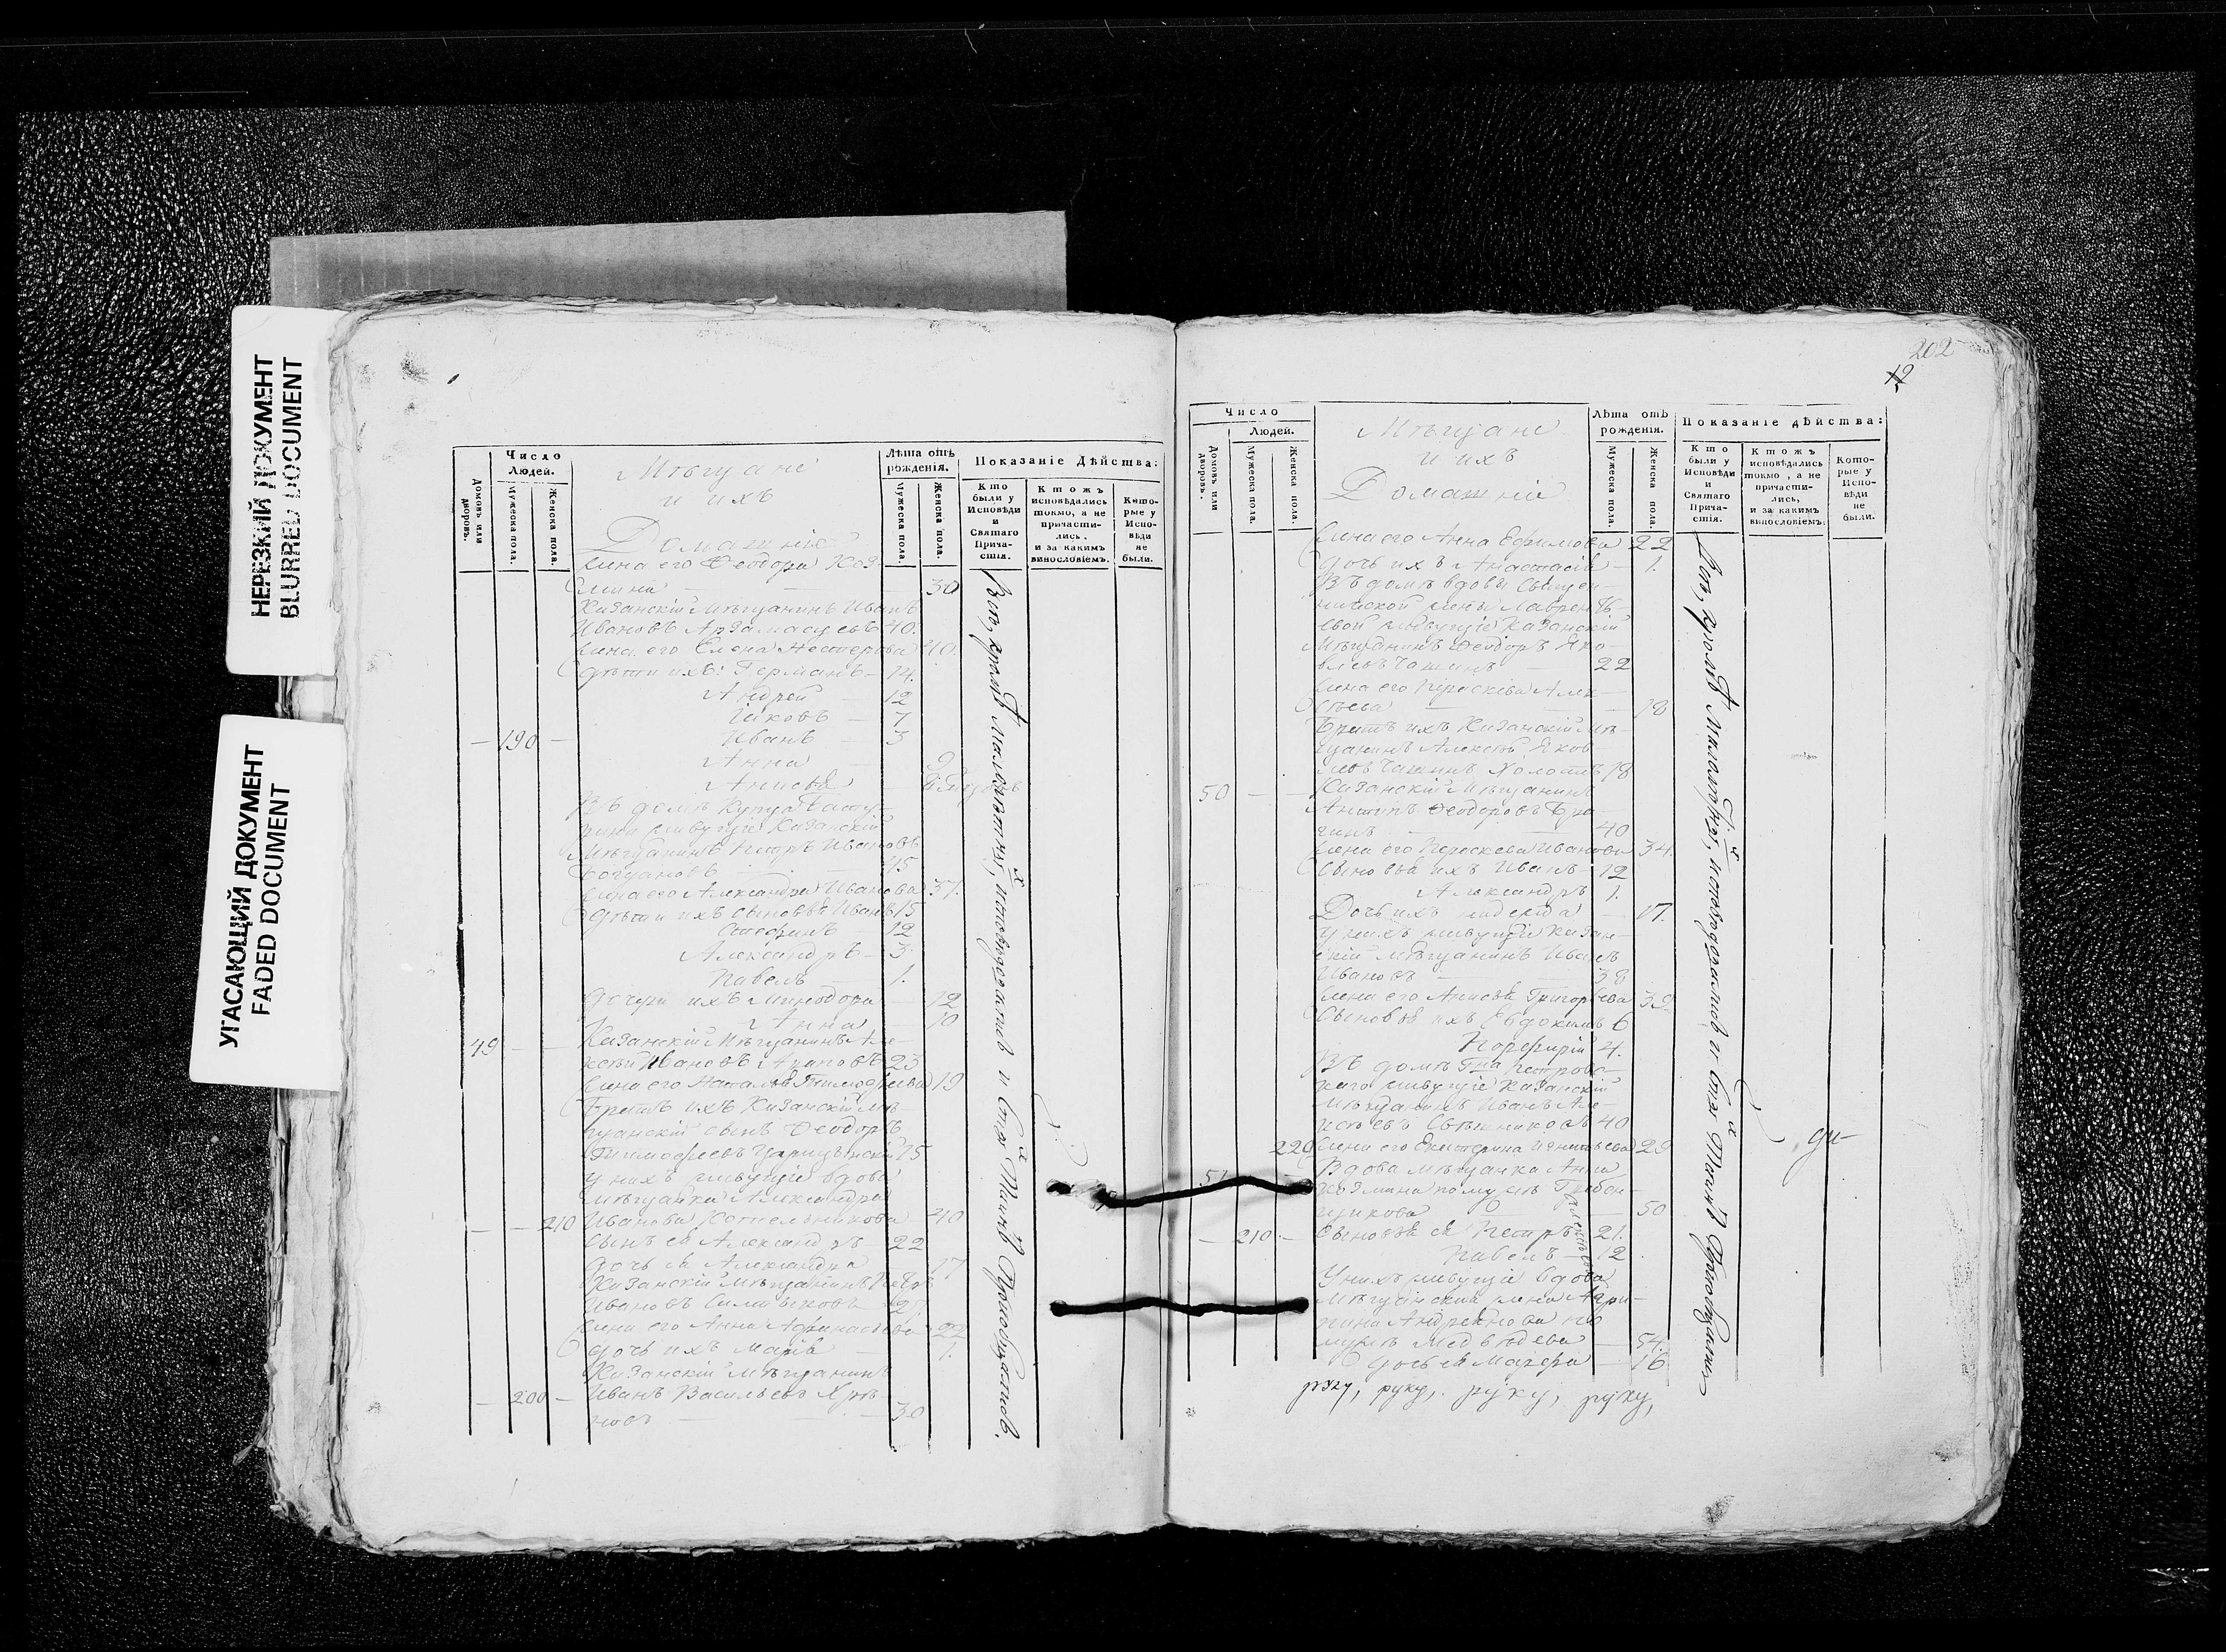 НЕРЕЗКИЙ ДОКУМЕНТ
BLURRED DOCUMENT
УГАСАЮЩИЙ ДОКУМЕНТ
FADED DOCUMENT
Число
Людей.
Домовъ или дворовъ.
Мужеска пола.
Женска пола.
Мѣщане
и ихъ
Домашнiе
Лѣта отъ рожденiя.
Мужеска пола.
Женска пола.
Показанiе Дѣйства:
Кто были у Исповѣди и Святаго Прича-стiя.
Ктожъ исповѣдались токмо, а не причасти-лись, и за какимъ винословiемъ.
Кото-рые у Испо-вѣди не были.
Жена его Феодора Коз-
мина — 30
Казанскiй Мѣщанинъ Иванъ
Ивановъ Арзамасцевъ 40.
Жена его Елена Нестерова 40.
дѣти ихъ: Германъ — 14.
Андрей — 12
Iаковъ — 7
— 190 — Иванъ — 3
Анна — 9
Анисья
Въ домѣ купца
живущiе Казанскiй
Мѣщанинъ Петръ Ивановъ
Богдановъ — 45
Жена его Александра Иванова 37.
Дѣти ихъ сыновья Иванъ 15
Стефанъ — 12
Александръ — 3
Павелъ — 1.
Дочери ихъ Минодора — 12
Анна — 10
49 — — Казанскiй Мѣщанинъ Але-
ксѣй Ивановъ 23
Жена его Наталья Тимофеева 19
Братъ ихъ Казанскiй Мѣ-
щанскiй сынъ Феодоръ
Тимофеевъ 15
У нихъ живущiе вдова
Мѣщанка Александра
— — 210 Иванова Котельникова — 40
Сынъ ея Александръ — 22
Дочь ея Александра — 17
Казанскiй Мѣщанинъ Петръ
Ивановъ
Жена его Анна Афанасьева — 22
Дочь ихъ Марiя — 1.
Казанскiй Мѣщанинъ
— 200 — Иванъ Васильевъ Хрѣ-
новъ — 30
Всѣ, кромѣ малолѣтныхъ, исповѣдались и Стыхъ Таинъ Прiобщались.
202
12
Число
Людей.
Домовъ или дворовъ.
Мужеска пола.
Женска пола.
Мѣщане
и ихъ
Домашнiе
Лѣта отъ рожденiя.
Мужеска пола.
Женска пола.
Показанiе дѣйства:
Кто были у Исповѣди и Святаго Прича-стiя.
Ктожъ исповѣдались токмо, а не причасти-лись, и за какимъ винословiемъ.
Кото-рые у Испо-вѣди не были.
Жена его Анна Ефимова 22
Дочь ихъ Анастасiя — 1.
Въ домѣ вдовы Священ-
нической жены Лаврентъ-
евой живущiе Казанскiй
Мѣщанинъ Феодоръ Яко-
влевъ Чашинъ — 22
Жена его Параскева Алек-
сѣева — 18
Братъ ихъ Казанскiй Мѣ-
щанинъ Алексѣй Яков-
левъ Чашинъ Холостъ 18
50 — — Казанскiй Мѣщанинъ
Антипъ Феодоровъ Бра-
гинъ — 40
Жена его Параскева Иванова 34.
Сыновья ихъ Иванъ — 12
Александръ 1.
Дочь ихъ Надежда — 17.
У нихъ живущiе Казан-
скiй Мѣщанинъ Иванъ
Ивановъ — 38
Жена его Анисья Григорьева 39
Сыновья ихъ Евдокимъ 6
Порфирiй 4.
Въ домѣ Гна Петров-
скаго живущiе Казанскiй
Мѣщанинъ Иванъ Але-
ксѣевъ Свѣшниковъ 40
220 Жена его Екатерина Игнатьева 29
51 Вдова мѣщанка Анна
Козмина по мужѣ Гребен-
щикова — 50
— 210 — Сыновья ея Петръ 21.
Павелъ — 12
У нихъ живущiе вдова
Мѣщанская жена Агри-
пина Андреянова по
мужѣ Медвѣдева — 54.
Дочь ея Марфа — 16
Всѣ, кромѣ малолѣтныхъ, исповѣдались и Стыхъ Таинъ Прiобщались
руку, руку, руку, руку,